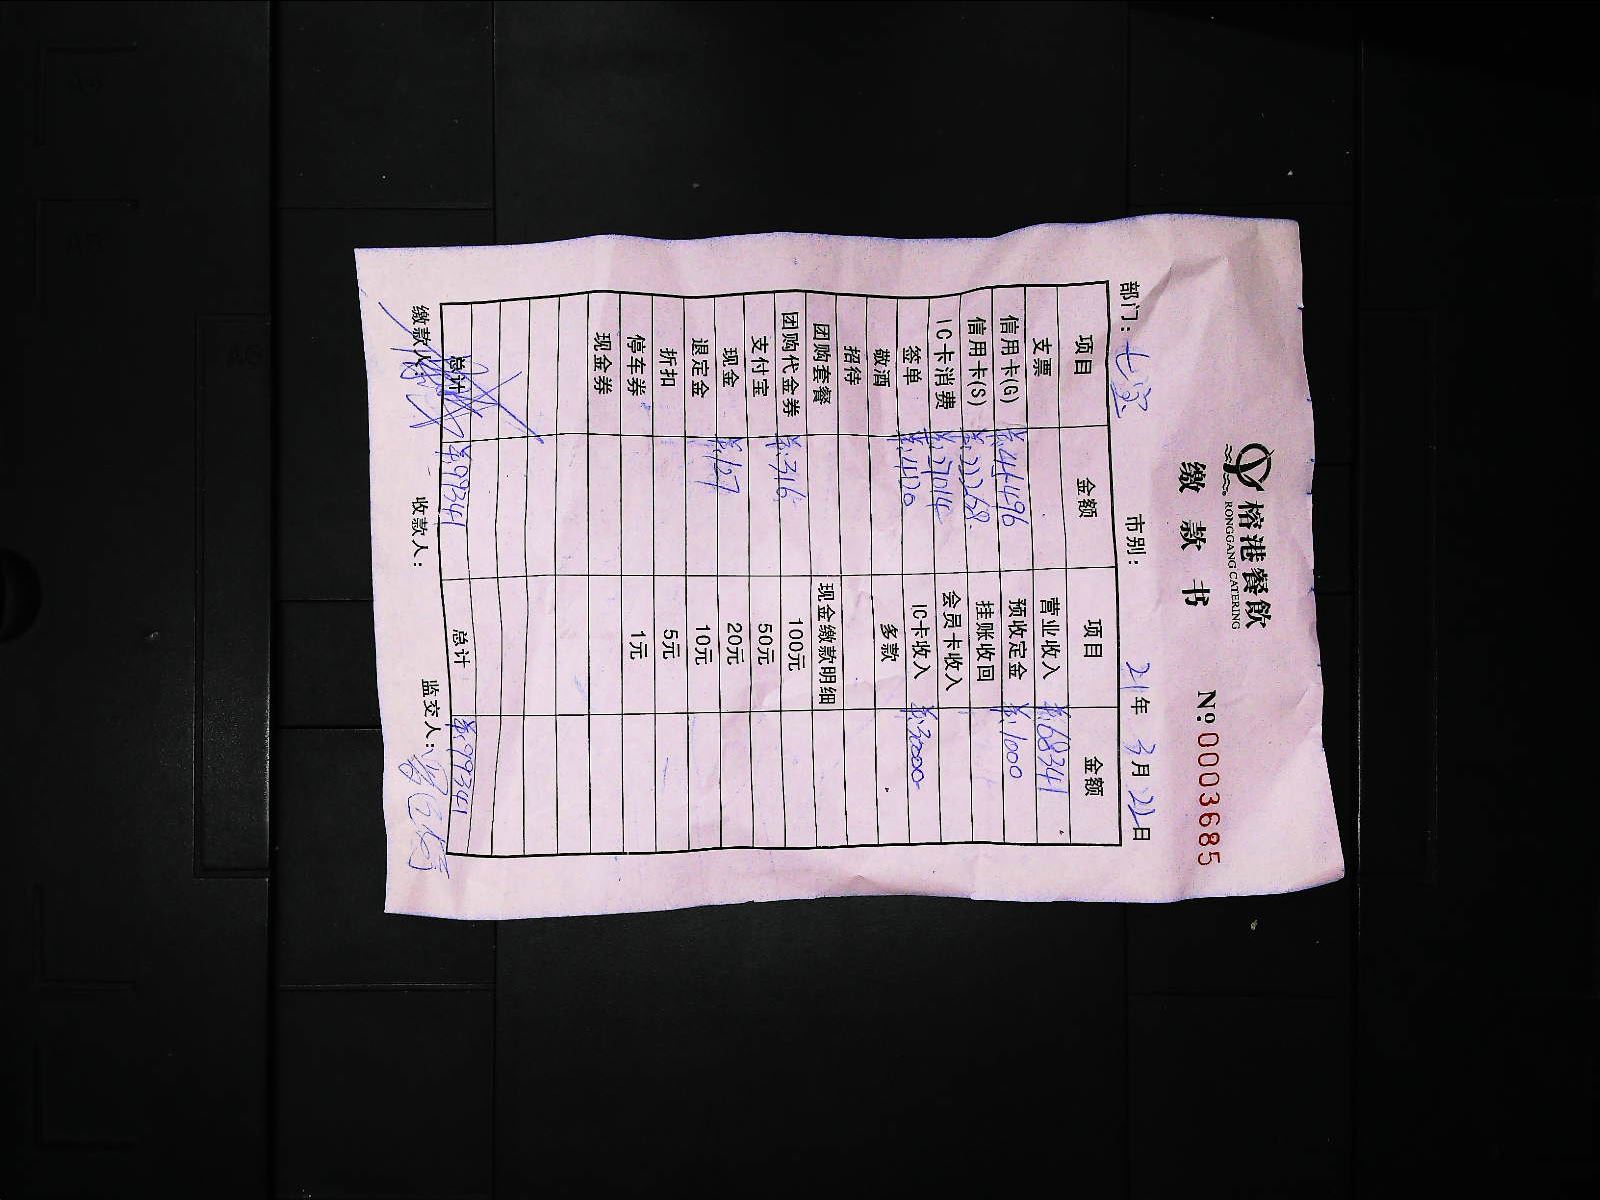 榕港餐飲
RONGGANG CATERING
缴款书 Nº 0003685
部门：七宝 市别： 21年 3月 22日
项目 金额 项目 金额
支票 营业收入 ¥68341
信用卡(G) ¥44496 预收定金 ¥1000
信用卡(S) ¥23268 挂账收回
IC卡消费 ¥27014 会员卡收入
签单 ¥4120 IC卡收入 ¥30000
敬酒 多款
招待
团购套餐 现金缴款明细
团购代金券 ¥316 100元
支付宝 50元
现金 ¥127 20元
退定金 10元
折扣 5元
停车券 1元
现金券
总计 ¥99341 总计 ¥99341
缴款人： 收款人： 监交人：